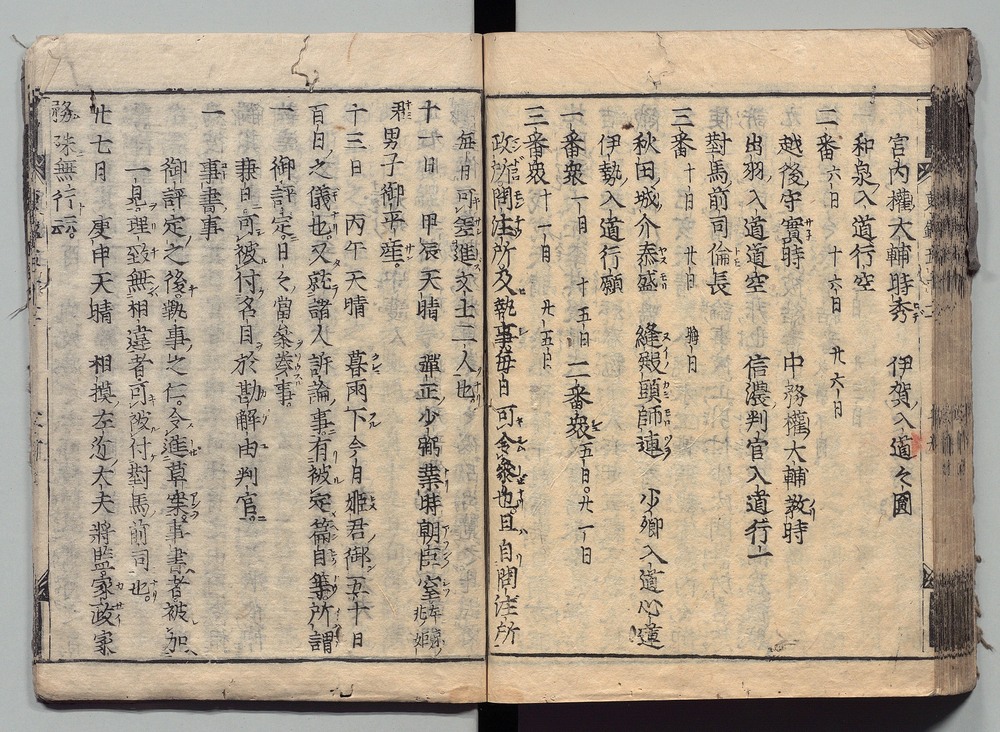 宮内權大輔時秀　伊賀入道々圓
和泉入道行空
二番 六日 十六日 廿六日
越後守實時　中務權大輔教時
出羽入道道空　信濃判官入道行一
對馬前司倫長
三番 十日 廿日 晦日
秋田城介泰盛　縫殿頭師連　少卿入道心蓮
伊勢入道行願
一番衆 一日 十五日 二番衆 五日。廿一日
三番衆 十一日 廿五日
政所問注所及執事毎日可令參也。且自問注所
毎日可差進文士二人也
十一日　甲辰天晴　彈正少弼業時朝臣室 左京兆姫
君男子御平産。
十三日　丙午天晴　暮雨下今月姫君御五十日
百日之儀也。又就諸人訴論事有被定篇目等所謂
一　御評定日々當參奉事。
兼日可被付名目於勘解由判官。
一　事書事
御評定之後。執事之仁。令進草案事書者。被加
一見。理致無相違者可被付對馬前司也。
廿七日　庚申天晴　相摸左近大夫將監。家政家
務殊無行